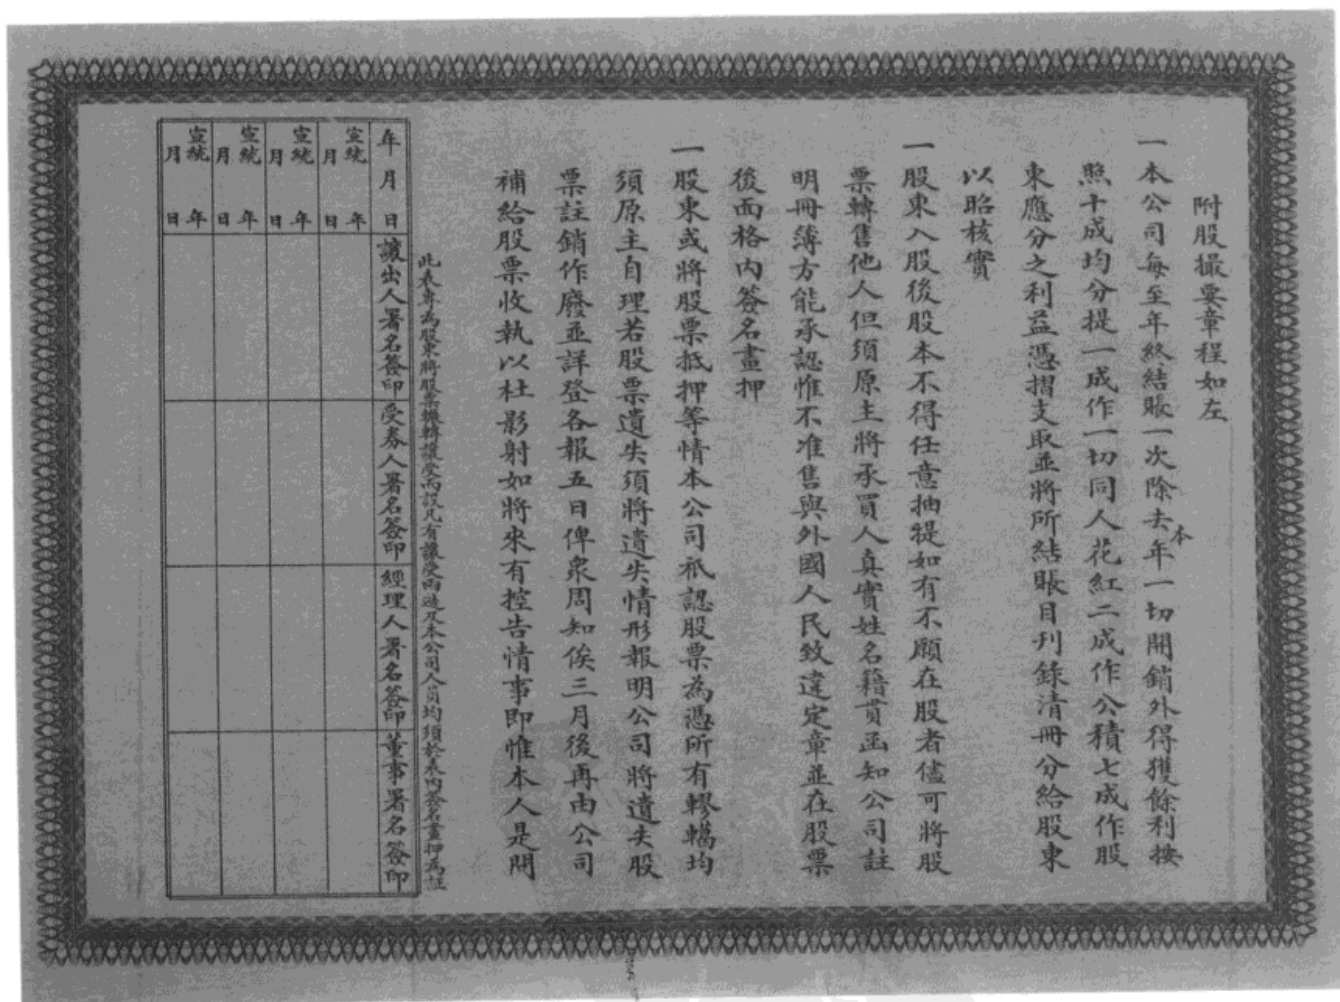 附股撮要章程如左
一本公司每至年終結賬一次除去本年一切開銷外得獲餘利按
照十成均分提一成作一切同人花紅二成作公積七成作股
東應分之利益憑摺支取並將所結賬目刊錄清冊分給股東
以昭核實
一股東入股後股本不得任意抽提如有不願在股者儘可將股
票轉售他人但須原主將承買人真實姓名籍貫函知公司註
明冊簿方能承認惟不准售與外國人民致違定章並在股票
後面格內簽名畫押
一股東或將股票抵押等情本公司祇認股票為憑所有轇轕均
須原主自理若股票遺失須將遺失情形報明公司將遺失股
票註銷作廢並詳登各報五日俾衆周知俟三月後再由公司
補給股票收執以杜影射如將來有控告情事即惟本人是問
此表專為股東將股票轉讓受而設凡有讓受兩造及本公司人員均須於表內簽名畫押為証
年月日 讓出人署名簽印 受券人署名簽印 經理人署名簽印 董事署名簽印
宣統 年 月 日
宣統 年 月 日
宣統 年 月 日
宣統 年 月 日